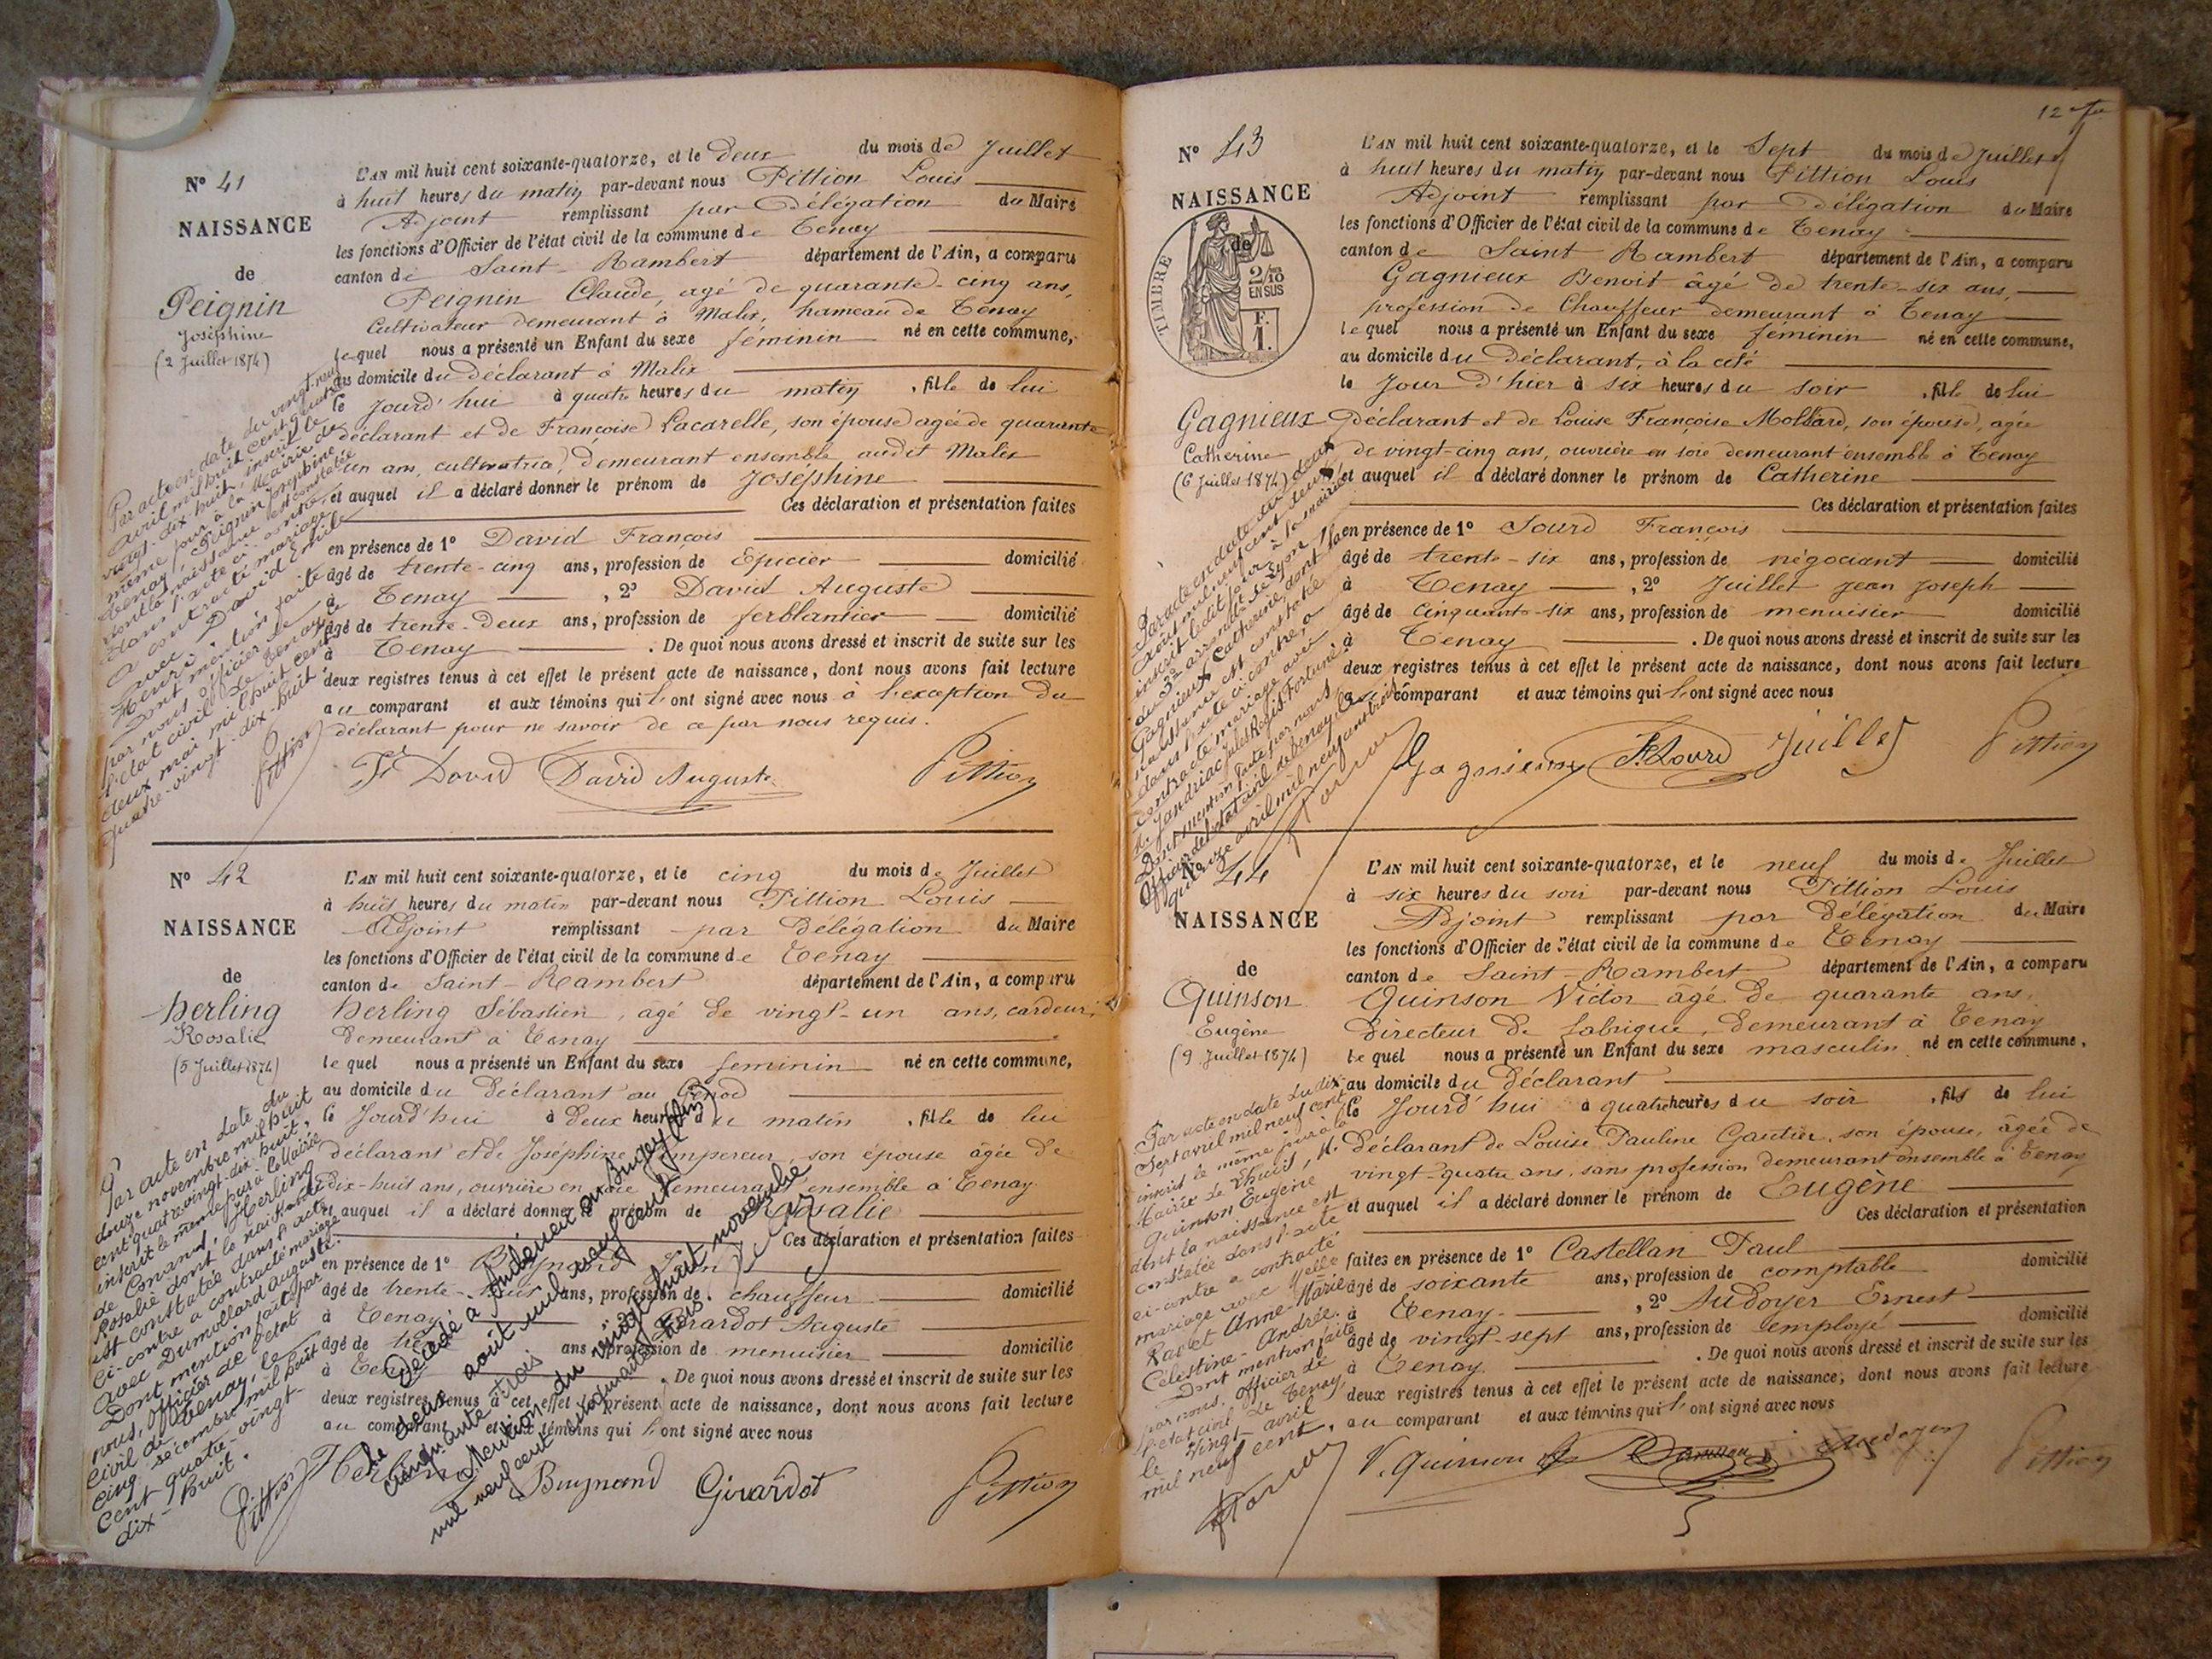 N° 41
NAISSANCE
de
Peignin
Joséphine
(2 Juillet 1874)
L'AN mil huit cent soixante-quatorze, et le deux du mois de Juillet
à huit heures du matin par-devant nous Pittion Louis
Adjoint remplissant par Délégation du Maire
les fonctions d'Officier de l'état civil de la commune de Tenay
canton de Saint-Rambert département de l'Ain, a comparu
Peignin Claude, agé de quarante-cinq ans,
Cultivateur demeurant à Malix, hameau de Tenay
lequel nous a présenté un Enfant du sexe féminin né en cette commune,
au domicile du Déclarant à Malix
le Jourd'hui à quatre heures du matin, fille de lui
déclarant et de Françoise Lacarelle, son épouse agée de quarante
un ans, cultivatrice, demeurant ensemble audit Malix
et auquel il a déclaré donner le prénom de Joséphine
Ces déclaration et présentation faites
en présence de 1° David François
âgé de trente-cinq ans, profession de Epicier domicilié
à Tenay, 2° David Auguste
âgé de trente-deux ans, profession de ferblantier domicilié
à Tenay. De quoi nous avons dressé et inscrit de suite sur les
deux registres tenus à cet effet le présent acte de naissance, dont nous avons fait lecture
au comparant et aux témoins qui l'ont signé avec nous à l'exception du
déclarant pour ne savoir de ce par nous requis.
Par acte en date du vingt-neuf
avril mil huit cent quatre
vingt-dix-huit, inscrit le
même jour à la Mairie de
Tenay, Peignin Joséphine
dont la naissance est constatée
dans l'acte ci-contre
a contracté mariage
avec David Emile
Henri
Dont mention faite
par nous officier de
l'état civil de Tenay le
deux mai mil huit cent
quatre-vingt-dix-huit.
Pittion
Fs David David Auguste Pittion
N° 42
NAISSANCE
de
Herling
Rosalie
(5 Juillet 1874)
L'AN mil huit cent soixante-quatorze, et le cinq du mois de Juillet
à huit heures du matin par-devant nous Pittion Louis
Adjoint remplissant par Délégation du Maire
les fonctions d'Officier de l'état civil de la commune de Tenay
canton de Saint-Rambert département de l'Ain, a comparu
Herling Sébastien, agé de vingt-un ans, cardeur,
demeurant à Tenay
lequel nous a présenté un Enfant du sexe feminin né en cette commune,
au domicile du Déclarant au
le Jourd'hui à deux heures du matin, fille de lui
déclarant et de Joséphine Empereur, son épouse âgée de
dix-huit ans, ouvrière en soie demeurant ensemble à Tenay
et auquel il a déclaré donner le prénom de Rosalie
Ces déclaration et présentation faites
en présence de 1° Buynand
âgé de trente- ans, profession de chauffeur domicilié
à Tenay Girardot Auguste
âgé de ans, profession de menuisier domicilié
à Tenay. De quoi nous avons dressé et inscrit de suite sur les
deux registres tenus à cet effet le présent acte de naissance, dont nous avons fait lecture
au comparant et aux témoins qui l'ont signé avec nous
Par acte en date du
douze novembre mil huit
cent quatre vingt-dix huit,
inscrit le même jour à la Mairie
de Conand, Herling
Rosalie dont la naissance
est constatée dans l'acte
ci-contre a contracté mariage
avec Dumollard Auguste.
Dont mention faite par
nous, Officier de l'état
civil de Tenay, le
cinq décembre mil huit
cent quatre-vingt-
dix-huit.
Pittion
Décédé à Andert en Bugey (Ain)
le deux août mil neuf cent
cinquante trois
Mention du vingt huit novembre
mil neuf cent cinquante trois
Herling Buynand Girardot Pittion
12
N° 43
NAISSANCE
de
TIMBRE
2/10
EN SUS
F.
1.
Gagnieux
Catherine
(6 Juillet 1874)
L'AN mil huit cent soixante-quatorze, et le Sept du mois de Juillet
à huit heures du matin par-devant nous Pittion Louis
Adjoint remplissant par Délégation du Maire
les fonctions d'Officier de l'état civil de la commune de Tenay
canton de Saint Rambert département de l'Ain, a comparu
Gagnieux Benoit âgé de trente-six ans,
profession de Chauffeur demeurant à Tenay
lequel nous a présenté un Enfant du sexe féminin né en cette commune,
au domicile du Déclarant, à la cité
le Jour d'hier à six heures du soir, fille de lui
déclarant et de Louise Françoise Mollard, son épouse, agée
de vingt-cinq ans, ouvrière en soie demeurant ensemble à Tenay
et auquel il a déclaré donner le prénom de Catherine
Ces déclaration et présentation faites
en présence de 1° Sourd François
âgé de trente-six ans, profession de négociant domicilié
à Tenay, 2° Juillet Jean Joseph
âgé de cinquante-six ans, profession de menuisier domicilié
à Tenay. De quoi nous avons dressé et inscrit de suite sur les
deux registres tenus à cet effet le présent acte de naissance, dont nous avons fait lecture
au comparant et aux témoins qui l'ont signé avec nous
Par acte en date du deux
inscrit ledit jour à la mairie
du 3e arrondt de Lyon
Gagnieux Catherine, dont la
naissance est constatée
dans l'acte ci-contre, a
contracté mariage avec
Jules Régis Fortuné
Dont mention faite par nous
Officier de l'état civil de Tenay, le
quinze avril mil neuf cent trois
Gagnieux F. Sourd Juillet Pittion
N° 44
NAISSANCE
de
Quinson
Eugène
(9 Juillet 1874)
L'AN mil huit cent soixante-quatorze, et le neuf du mois de Juillet
à six heures du soir par-devant nous Pittion Louis
Adjoint remplissant par Délégation du Maire
les fonctions d'Officier de l'état civil de la commune de Tenay
canton de Saint-Rambert département de l'Ain, a comparu
Quinson Victor âgé de quarante ans,
Directeur de fabrique, demeurant à Tenay
lequel nous a présenté un Enfant du sexe masculin né en cette commune,
au domicile du Déclarant
le Jourd'hui à quatre heures du soir, fils de lui
déclarant de Louise Pauline Gautier, son épouse, âgée de
vingt-quatre ans, sans profession demeurant ensemble à Tenay
et auquel il a déclaré donner le prénom de Eugène
Ces déclaration et présentation
faites en présence de 1° Castellan Paul
âgé de soixante ans, profession de comptable domicilié
à Tenay, 2° Audoyer Ernest
âgé de vingt-sept ans, profession de employé domicilié
à Tenay. De quoi nous avons dressé et inscrit de suite sur les
deux registres tenus à cet effet le présent acte de naissance, dont nous avons fait lecture
au comparant et aux témoins qui l'ont signé avec nous
Par acte en date du dix
sept avril mil neuf cent
inscrit le même jour à la
Mairie de Lhuis, M.
Quinson Eugène
dont la naissance est
constatée dans l'acte
ci-contre a contracté
mariage avec Melle
Ravet Anne-Marie
Célestine-Andrée.
Dont mention faite
par nous, officier de
l'état civil de Tenay,
le vingt avril
mil neuf cent.
V. Quinson Audoyer Pittion